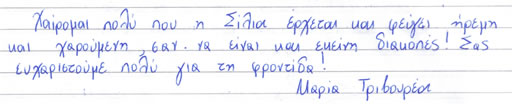 Χαίρομαι πολύ που η Σίλια έρχεται και φεύγει ήρεμη
και χαρούμενη, σαν να είναι και εμείνη διακοπές! Σας
ευχαριστούμε πολύ για τη φροντίδα!
Μαρία Τριβουρέα